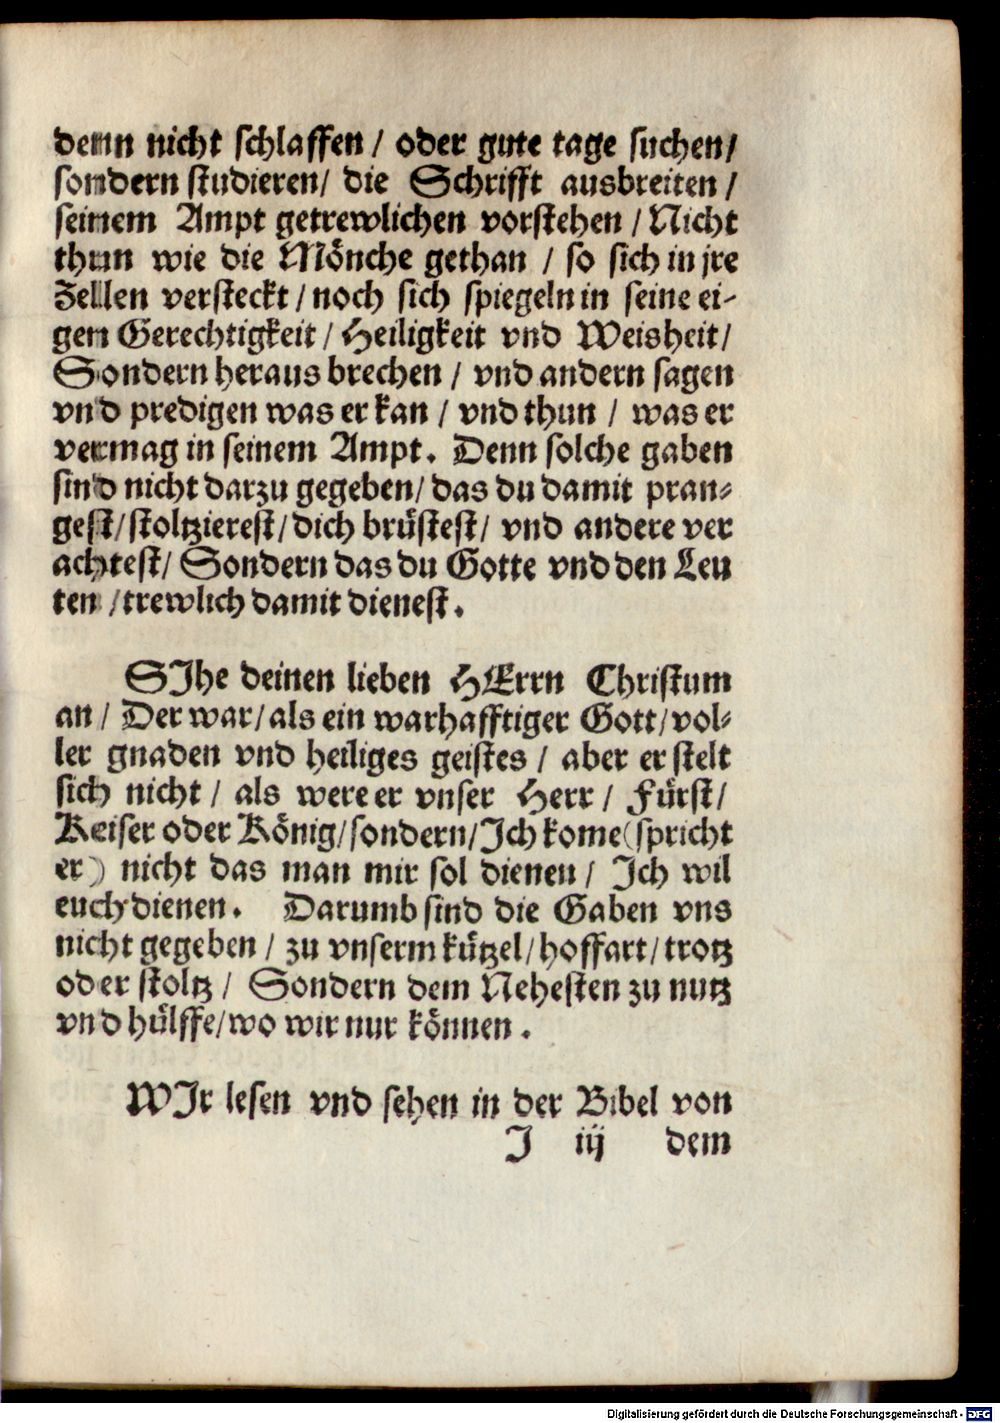 denn nicht schlaffen / oder gute tage suchen /
sondern studieren / die Schrifft ausbreiten /
seinem Ampt getrewlichen vorstehen / Nicht
thun wie die Mönche gethan / so sich in jre
Zellen versteckt / noch sich spiegeln in seine ei-
gen Gerechtigkeit / Heiligkeit vnd Weisheit /
Sondern heraus brechen / vnd andern sagen
vnd predigen was er kan / vnd thun / was er
vermag in seinem Ampt. Denn solche gaben
sind nicht darzu gegeben / das du damit pran-
gest / stoltzierest / dich brüstest / vnd andere ver
achtest / Sondern das du Gotte vnd den Leu
ten / trewlich damit dienest.
SIhe deinen lieben HErrn Christum
an / Der war / als ein warhafftiger Gott / vol-
ler gnaden vnd heiliges geistes / aber er stelt
sich nicht / als were er vnser Herr / Fürst /
Keiser oder König / sondern / Ich kome (spricht
er) nicht das man mir sol dienen / Ich wil
euch dienen. Darumb sind die Gaben vns
nicht gegeben / zu vnserm kützel / hoffart / trotz
oder stoltz / Sondern dem Nehesten zu nutz
vnd hülffe / wo wir nur können.
WIr lesen vnd sehen in der Bibel von
J iij dem
Digitalisierung gefördert durch die Deutsche Forschungsgemeinschaft - DFG